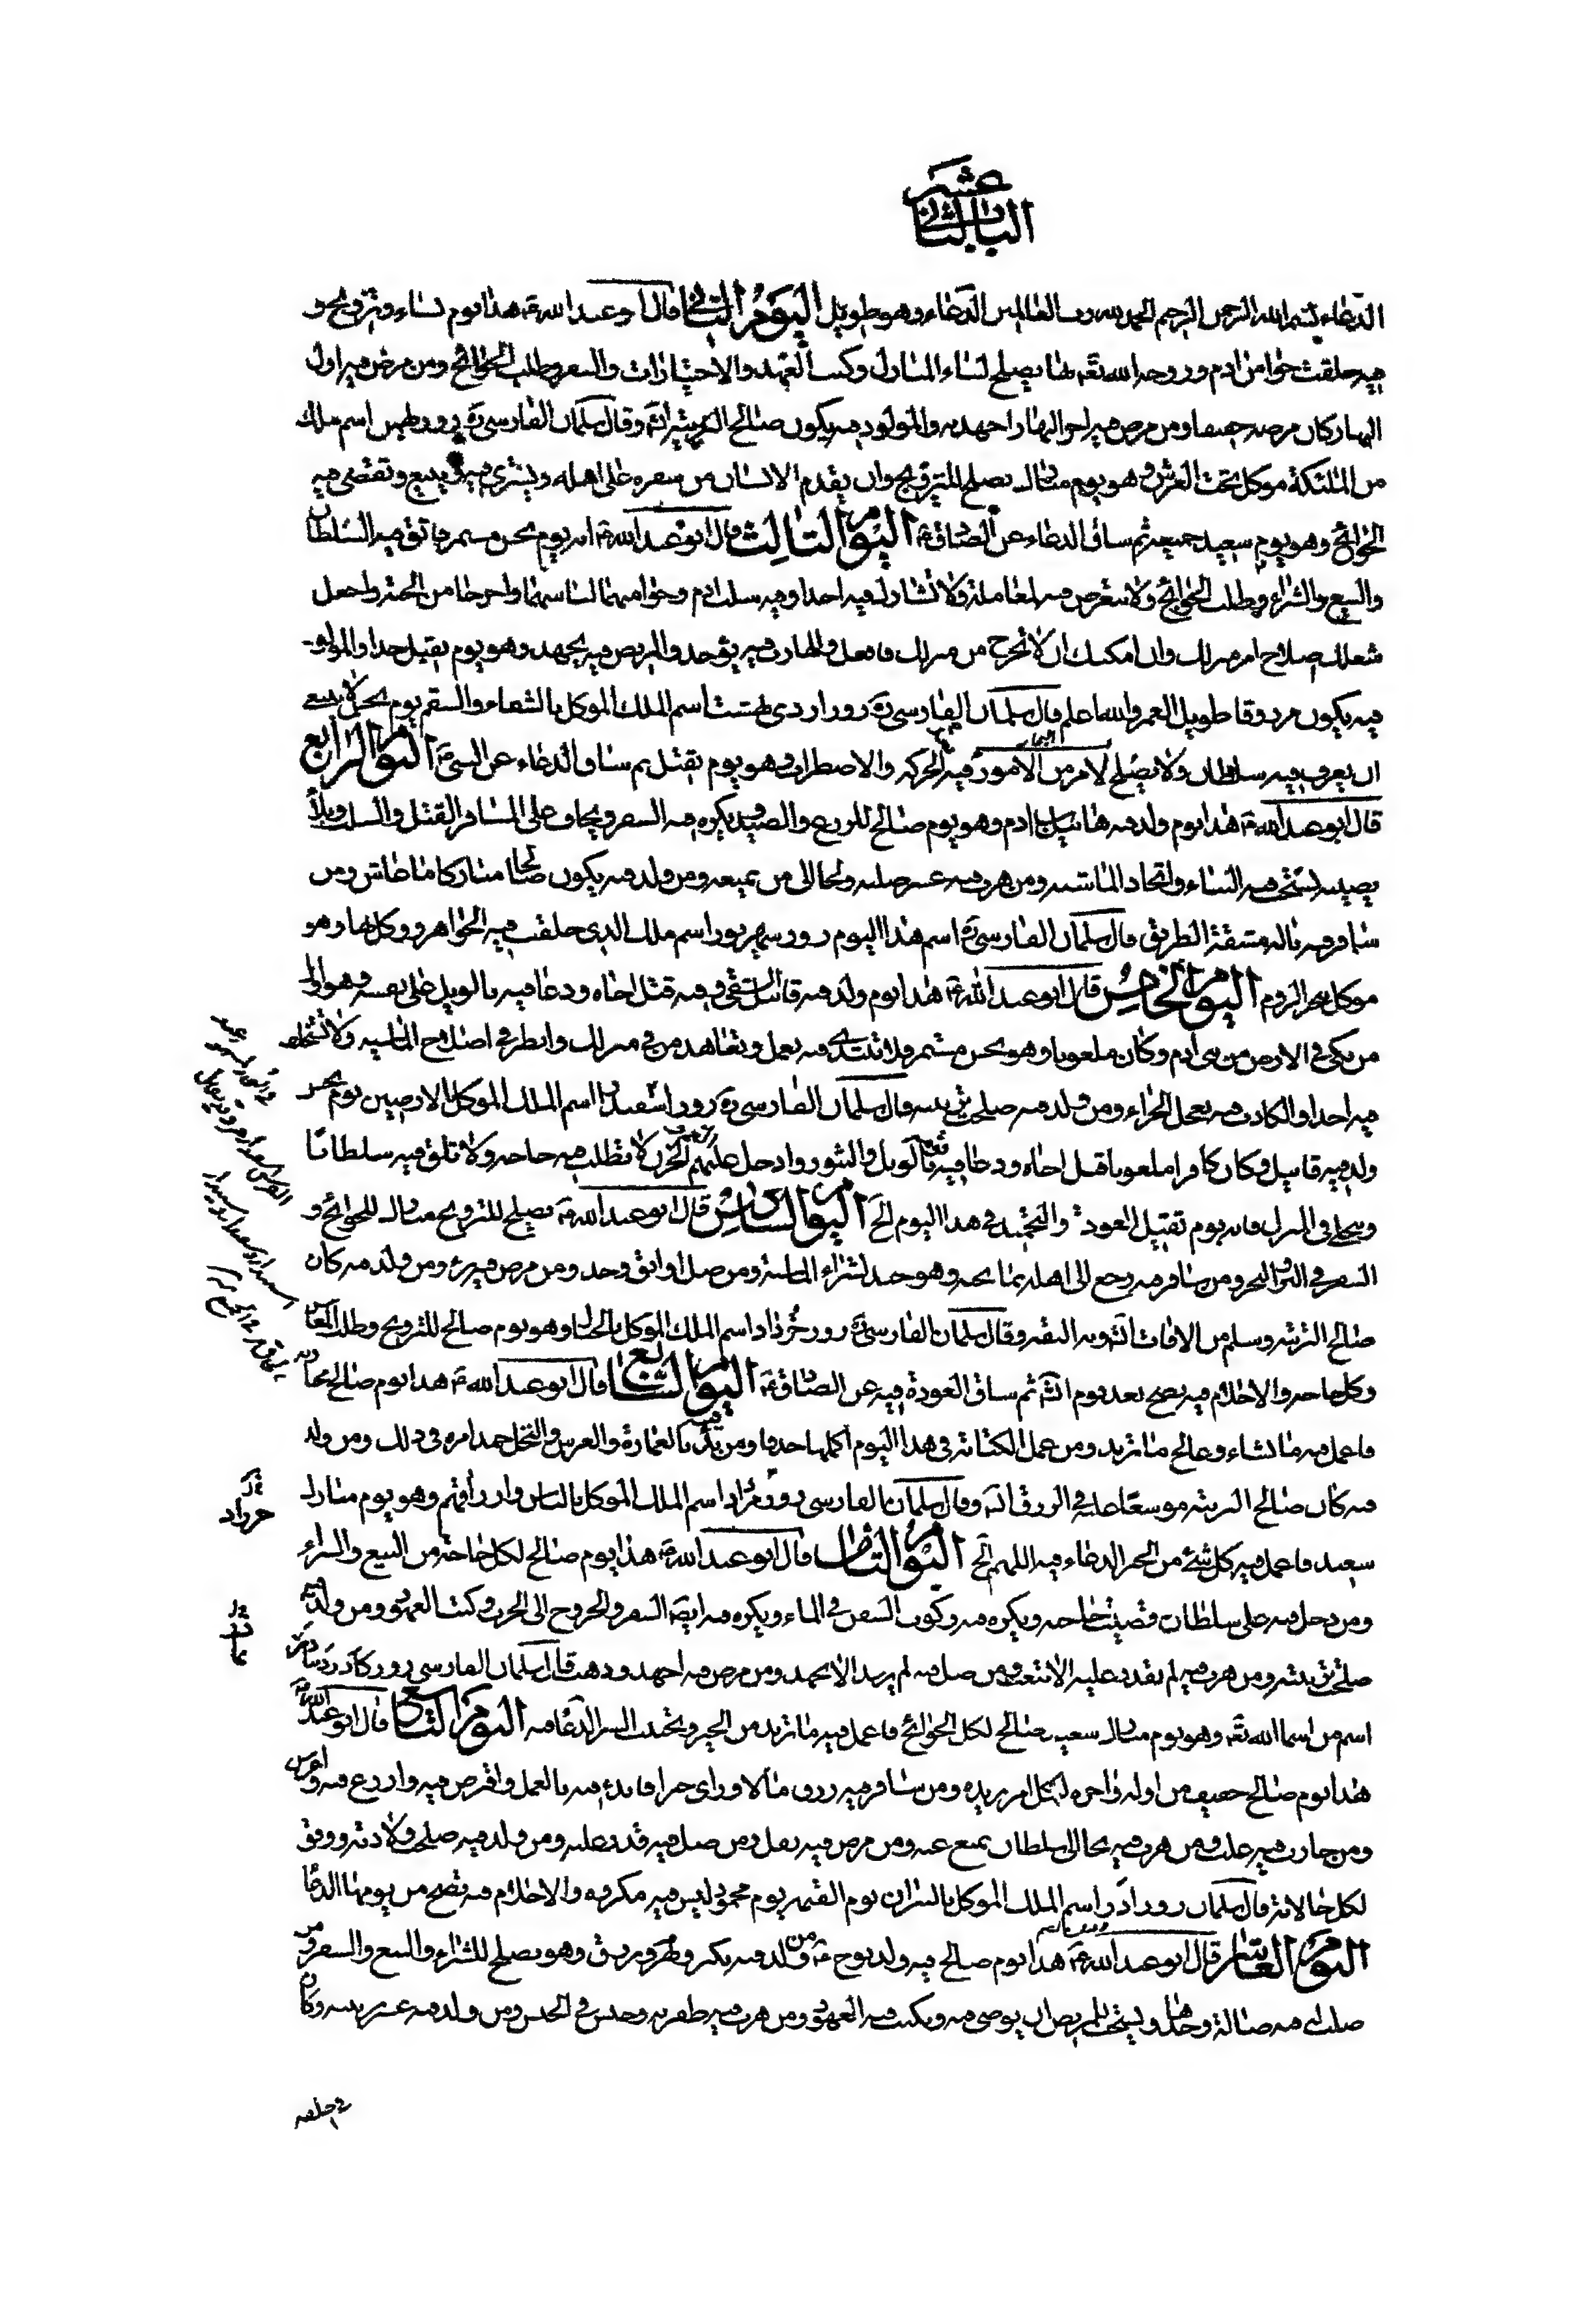 الباب الثاني
عشر
الدعاء بسم الله الرحمن الرحيم الحمد لله رب العالمين الدعاء وهو طويل اليوم الثاني قال ابو عبد الله ع هذا يوم نساء وتزويج و
فيه خلقت حوا من ادم وزوجه الله تع بها يصلح لبناء المنازل وكتب العهد والاختيارات والسفر وطلب الحوائج ومن مرض فيه اول
النهار كان مرضه خفيفا ومن مرض فيه اخر النهار اجهد به والمولود فيه يكون صالح التربية انش وقال سلمان الفارسي ره روز بهمن اسم ملك
من الملئكة موكل تحت العرش وهو يوم مبارك يصلح للتزويج وان يقدم الانسان من سفره على اهله ويشتري فيه ويبيع وتقضى فيه
الحوائج وهو يوم سعيد جميعه ثم ساق الدعاء عن الصادق ع اليوم الثالث قال ابو عبد الله ع انه يوم نحس مستمر فاتق فيه السلطان
والبيع والشراء وطلب الحوائج ولا تتعرض فيه لمعاملة ولا تشارك فيه احدا وفيه سلب ادم وحوا عنهما لباسهما واخرجا من الجنة واجعل
شغلك صلاح امر منزلك وان امكنك ان لا تخرج من منزلك فافعل والهارب فيه يؤخذ والمريض فيه يجهد وهو يوم ثقيل جدا والمولود
فيه يكون مرزوقا طويل العمر والله اعلم قال سلمان الفارسي ره روز اردى بهشت اسم الملك الموكل بالشفاء والسقم يوم نحس لا ينبغي
ان يعرف فيه سلطان ولا يصلح لامر من الامور فيه الحركة والاضطراب وهو يوم ثقيل ثم ساق الدعاء عن النبي ص اليوم الرابع
قال ابو عبد الله ع هذا يوم ولد فيه هابيل بن ادم وهو يوم صالح للزرع والصيد ويكره فيه السفر ويخاف على المسافر القتل والسلب وبلاء
يصيبه يستحب فيه البناء واتخاذ الماشية ومن هرب فيه عسر طلبه ولجا الى من يمنعه ومن ولد فيه يكون صالحا مباركا ما عاش ومن
سافر فيه ناله مشقة الطريق قال سلمان الفارسي ره اسم هذا اليوم روز شهريور اسم ملك الذي خلقت فيه الجواهر ووكل بها وهو
موكل ببحر الروم اليوم الخامس قال ابو عبد الله ع هذا يوم ولد فيه قابيل الشقي وفيه قتل اخاه ودعا فيه بالويل على نفسه وهو اول
من بكى في الارض من بني ادم وكان ملعونا وهو نحس مستمر فلا تبتدئ فيه بعمل وتعاهد من في منزلك وانظر في اصلاح الماشية ولا تستحلف
فيه احدا والكاذب فيه يعجل الجزاء ومن ولد فيه صلحت تربيته قال سلمان الفارسي ره روز اسفندار اسم الملك الموكل بالارضين يوم نحس
ولد فيه قابيل وكان كافرا ملعونا قتل اخاه ودعا فيه بالويل والثبور وادخل عليهم الحزن لا تطلب فيه حاجة ولا تلق فيه سلطانا
وتخلى في المنزل فانه يوم ثقيل العودة والتحميد في هذا اليوم الخ اليوم السادس قال ابو عبد الله ع يصلح للتزويج مبارك للحوائج و
السفر في البر والبحر ومن سافر فيه رجع الى اهله بما يحبه وهو جيد لشراء الماشية ومن ضل او ابق وجد ومن مرض فيه برئ ومن ولد فيه كان
صالح التربية وسلم من الافات انش وبه الثقة وقال سلمان الفارسي ره روز خرداد اسم الملك الموكل بالجبال وهو يوم صالح للتزويج وطلب المعاش
وكل حاجة والاحلام فيه يصح بعد يوم انش ثم ساق العودة فيه عن الصادق ع اليوم السابع قال ابو عبد الله ع هذا يوم صالح كما
فاعمل فيه ما تشاء وعالج ما تريد ومن عمل الكتابة في هذا اليوم اكملها حذقا ومن بدأ فيه بالعمارة والغرس والنخل حمد امره في ذلك ومن ولد
فيه كان صالح التربية موسعا عليه في الرزق انش وقال سلمان الفارسي روز مرداد اسم الملك الموكل بالناس وارزاقهم وهو يوم مبارك
سعيد فاعمل فيه كل شئ من الخير الدعاء فيه اللهم الخ اليوم الثامن قال ابو عبد الله ع هذا يوم صالح لكل حاجة من البيع والشراء
ومن دخل فيه على سلطان قضيت حاجته ويكره فيه ركوب السفن في الماء ويكره فيه ايضا السفر والخروج الى الحرب وكتب العهود ومن ولد فيه
صلحت تربيته ومن هرب فيه لم يقدر عليه الا بتعب ومن ضل فيه لم يرشد الا بجهد ومن مرض فيه اجهد ودهت قال سلمان الفارسي روز
اسم من اسماء الله تع وهو يوم مبارك سعيد صالح لكل الحوائج فاعمل فيه ما تريد من الخير وتجنب الشر الدعاء فيه اليوم التاسع قال ابو عبد الله ع
هذا يوم صالح خفيف من اوله واخره لكل امر تريده ومن سافر فيه رزق مالا وراى خيرا فابدء فيه بالعمل واقترض فيه وازرع فيه واغرس
ومن حارب فيه غلب ومن هرب فيه نجا الى سلطان يمنع عنه ومن مرض فيه ثقل ومن ضل فيه قدر عليه ومن ولد فيه صلحت ولادته ووفق
لكل حالاته قال سلمان روز آذر اسم الملك الموكل بالنيران يوم القيمة يوم محمود ليس فيه مكروه والاحلام فيه تصح من يومها الدعا
اليوم العاشر قال ابو عبد الله ع هذا يوم صالح فيه ولد نوح ع من ولد فيه يكبر ويهرم ويرزق وهو يصلح للشراء والبيع والسفر ومن
ضلت له فيه ضالة وجدها ويستحب للمريض ان يوصي فيه ويكتب فيه العهود ومن هرب فيه ظفر به وحبس في الحبس ومن ولد فيه وكان
خرداد